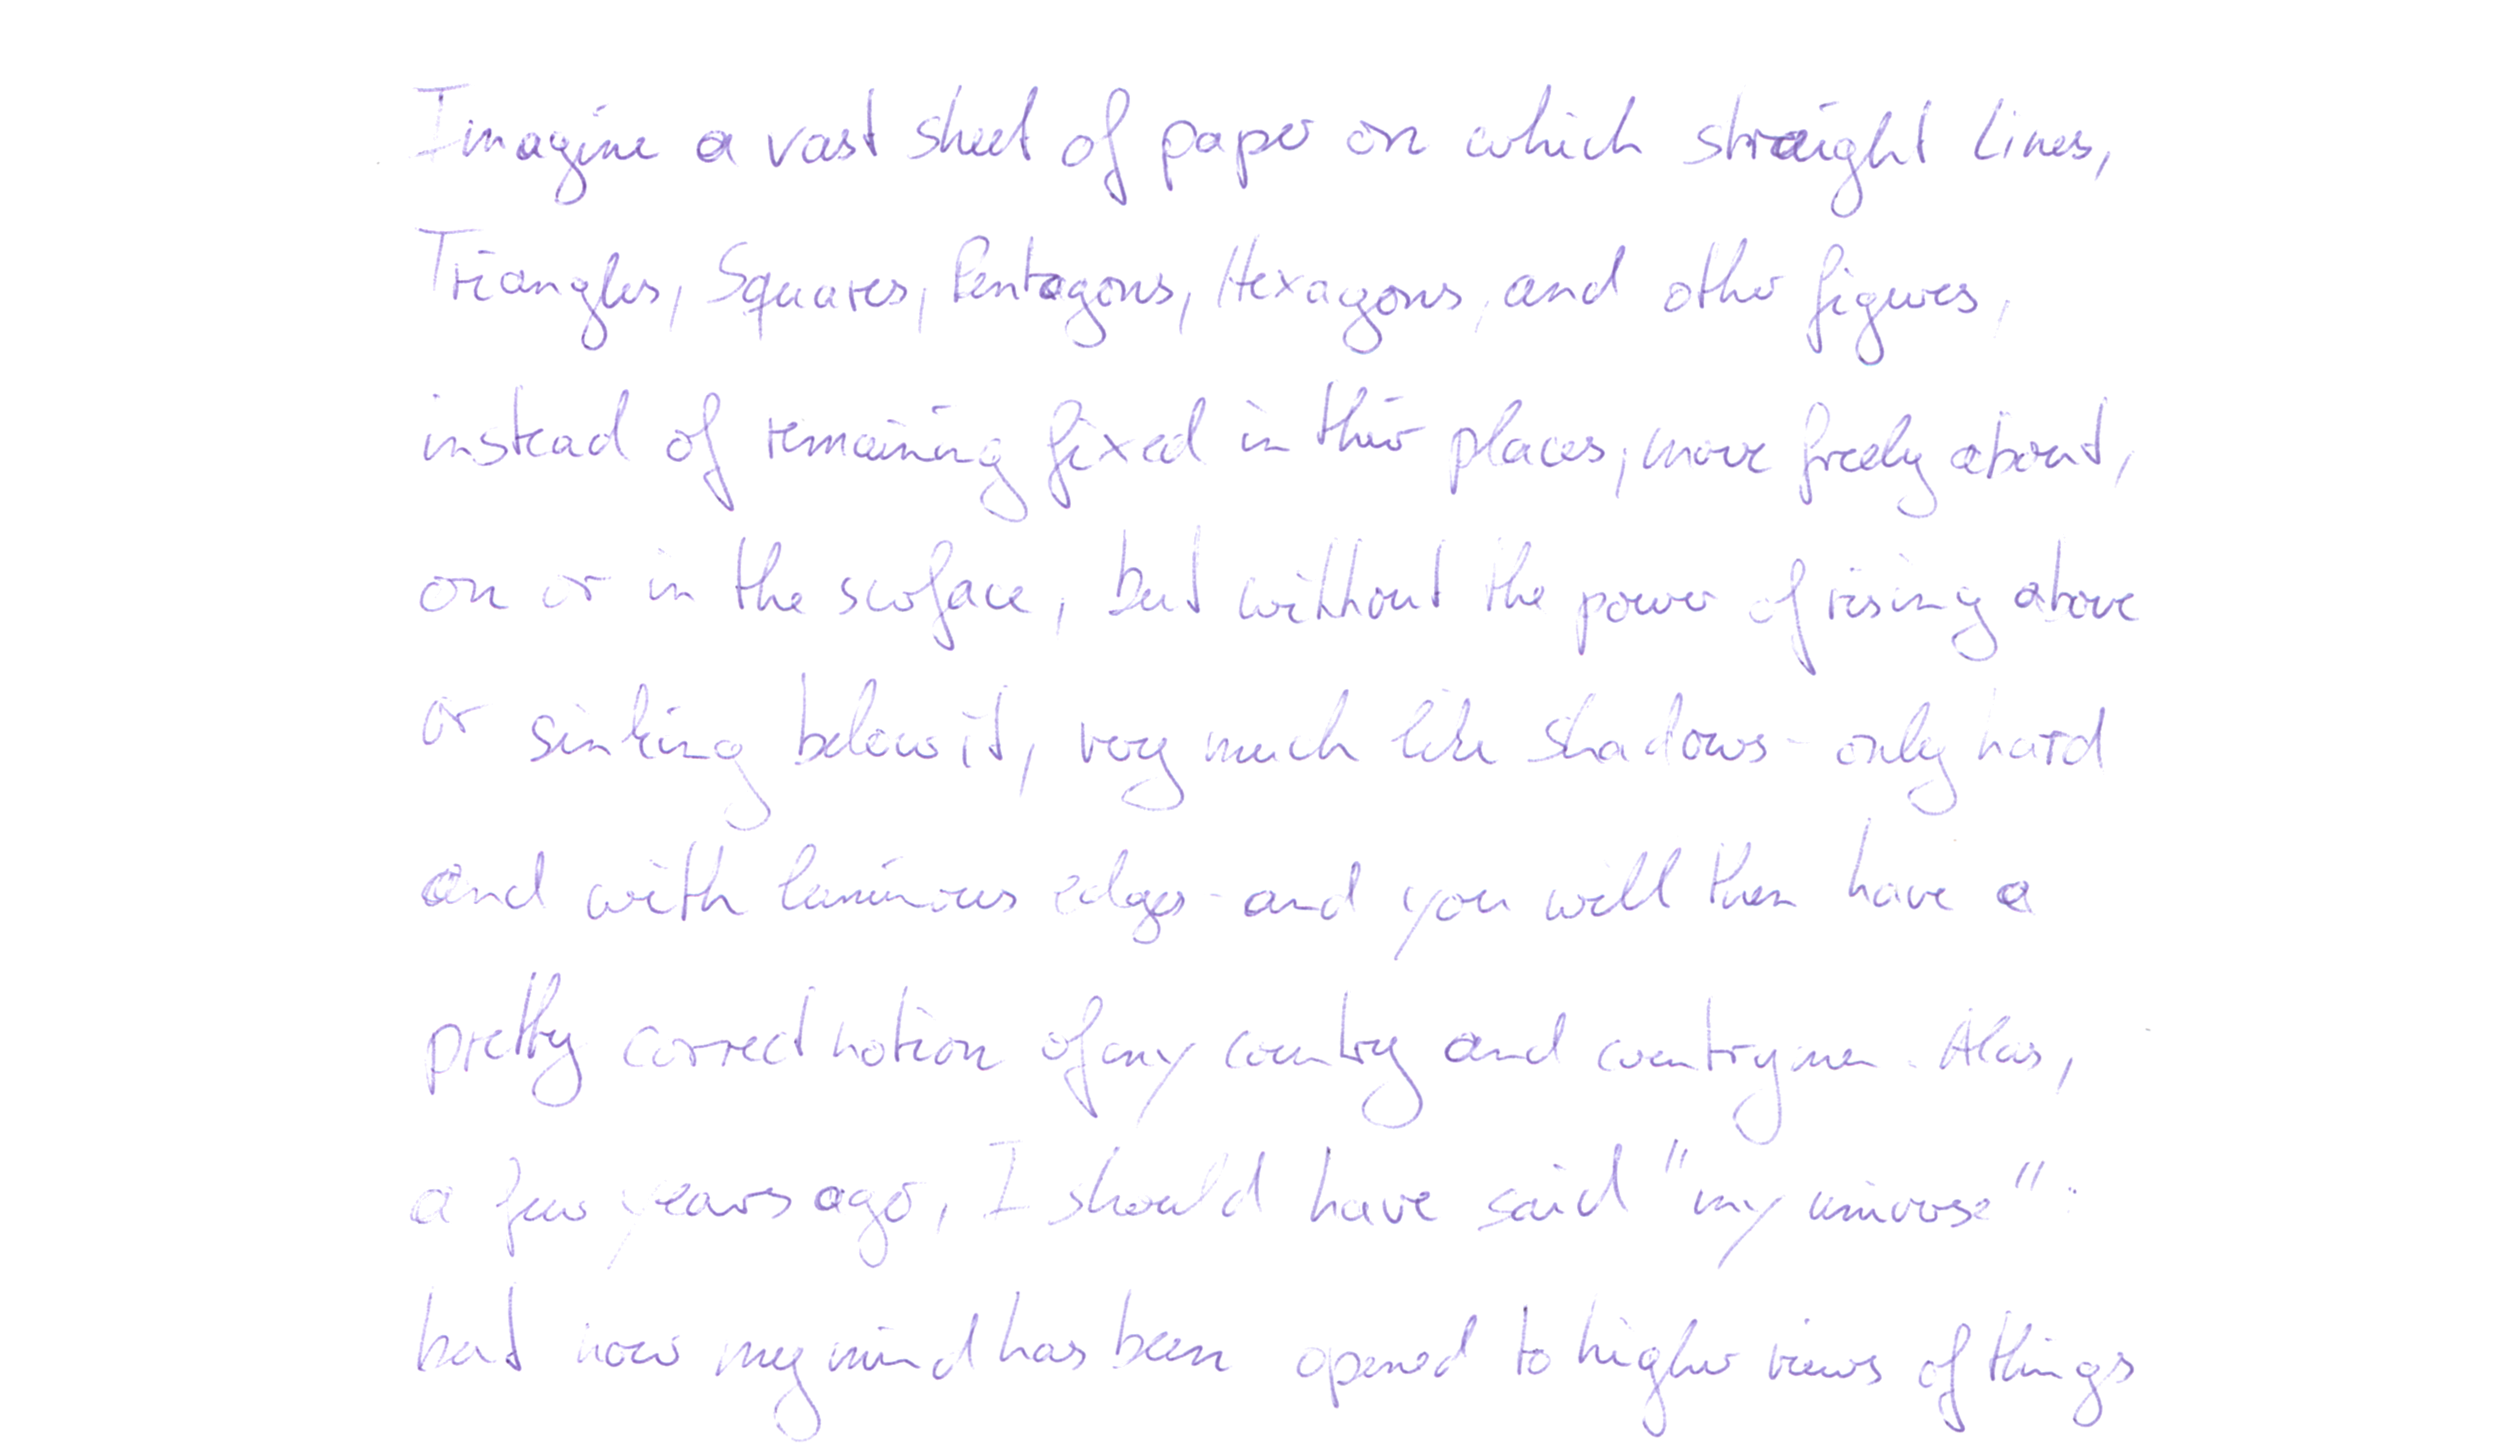 Imagine a vast sheet of paper on which straight lines,
Triangles, Squares, Pentagons, Hexagons, and other figures,
instead of remaining fixed in their places, move freely about,
on or in the surface, but without the power of rising above
or sinking below it, very much like shadows - only hard
and with luminous edges - and you will then have a
pretty correct notion of my country and countrymen. Alas,
a few years ago, I should have said "my universe":
but now my mind has been opened to higher views of things